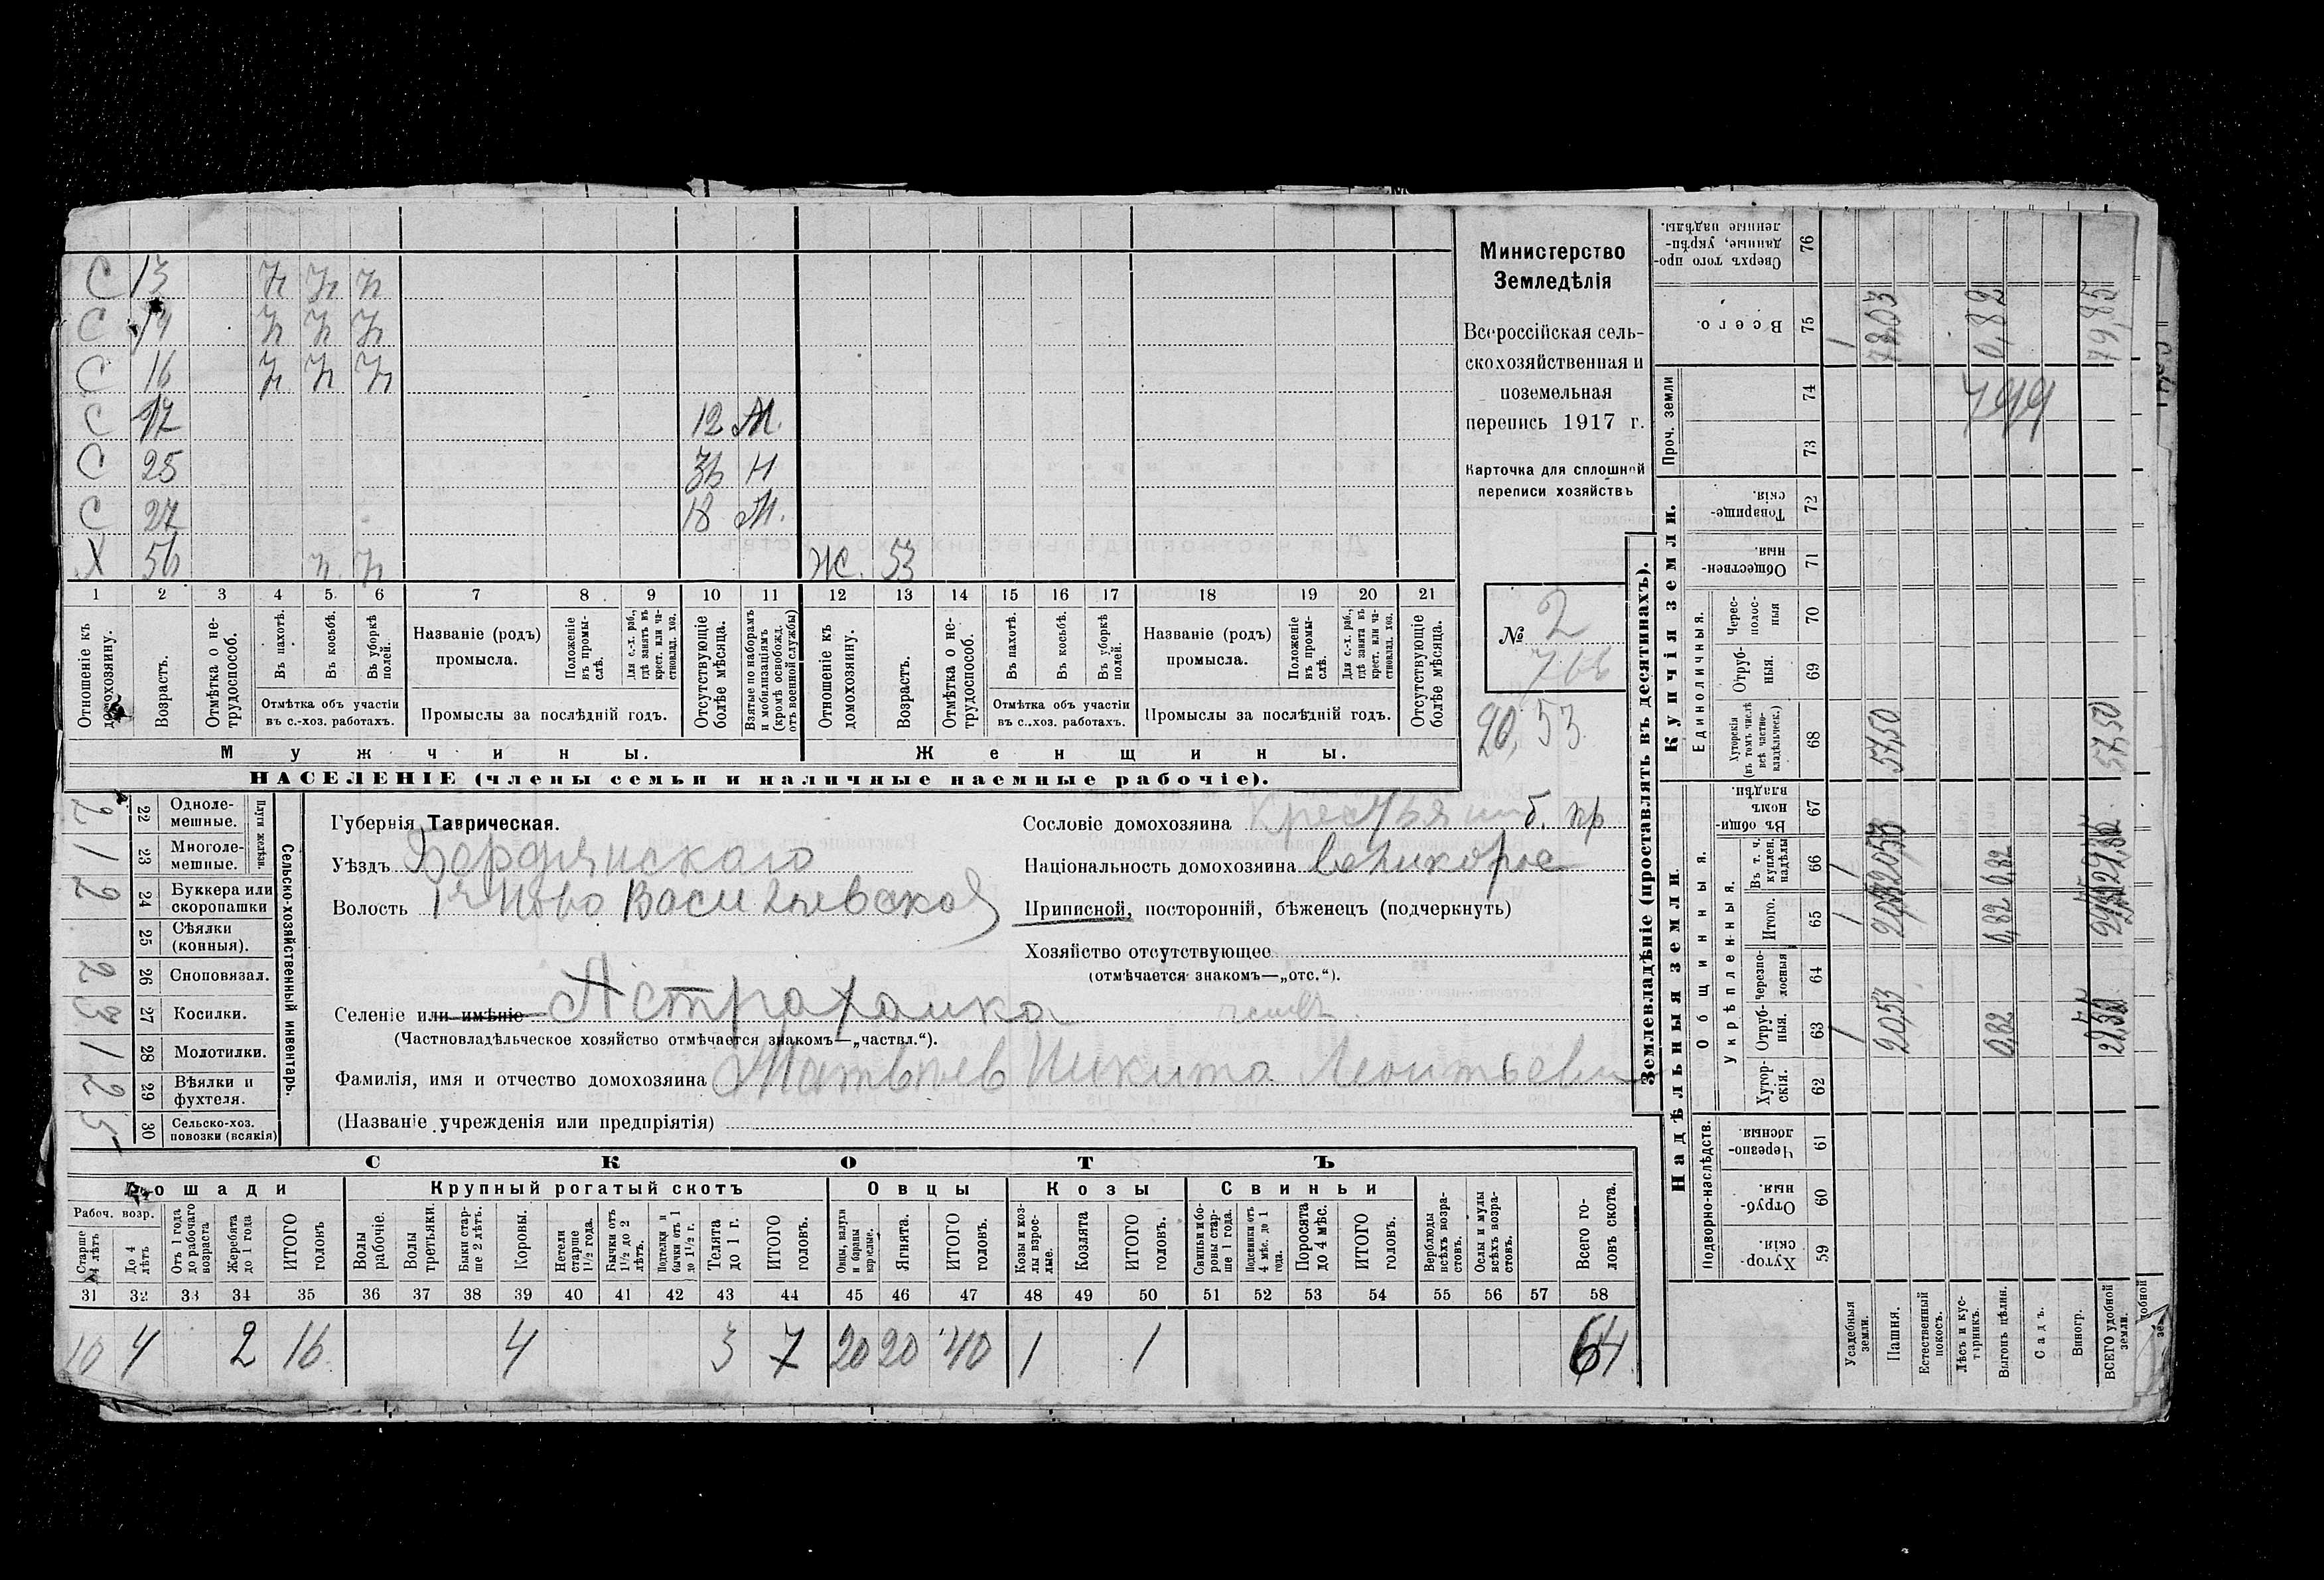 С 13 п п п
С 14 п п п
С 16 п п п
С 17 12 М.
С 25 36 Н
С 27 18 М.
Х 56 п. п Ж. 53
1 2 3 4 5 6 7 8 9 10 11 12 13 14 15 16 17 18 19 20 21
Отношеніе къ домохозяину.
Возрастъ.
Отмѣтка о нетрудоспособ.
Въ пахотѣ.
Въ косьбѣ.
Въ уборкѣ полей.
Отмѣтка объ участіи въ с.-хоз. работахъ.
Названіе (родъ) промысла.
Положеніе въ промыслѣ.
Для с.-х. раб., гдѣ занятъ въ крест. или частновлад. хоз.
Промыслы за послѣдній годъ.
Отсутствующіе болѣе мѣсяца.
Взятые по наборамъ и мобилизаціямъ (кромѣ освобожд. отъ военной службы)
Отношеніе къ домохозяину.
Возрастъ.
Отмѣтка о нетрудоспособ.
Въ пахотѣ.
Въ косьбѣ.
Въ уборкѣ полей.
Отмѣтка объ участіи въ с.-хоз. работахъ.
Названіе (родъ) промысла.
Положеніе въ промыслѣ.
Для с.-х. раб., гдѣ занята въ крест. или частновлад. хоз.
Промыслы за послѣдній годъ.
Отсутствующіе болѣе мѣсяца.
Мужчины. Женщины.
НАСЕЛЕНІЕ (члены семьи и наличные наемные рабочіе).
Министерство
Земледѣлія
Всероссійская сель-
скохозяйственная и
поземельная
перепись 1917 г.
Карточка для сплошной
переписи хозяйствъ
№ 2
766
20,53
Сельско-хозяйственный инвентарь.
Плуги желѣзн.
2 22 Однолемешные.
1 23 Многолемешные.
2 24 Буккера или скоропашки
25 Сѣялки (конныя).
2 26 Сноповязал.
3 27 Косилки.
1 28 Молотилки.
2 29 Вѣялки и фухтеля.
5 30 Сельско-хоз. повозки (всякія)
Губернія Таврическая.
Уѣздъ Бердянскаго
Волость Ново Васильевской
Селеніе или имѣніе Астраханка
(Частновладѣльческое хозяйство отмѣчается знакомъ—„частвл.“).
Фамилія, имя и отчество домохозяина Матвѣев Никита Леонтьевич
(Названіе учрежденія или предпріятія)
Сословіе домохозяина Крестьянин б. пр
Національность домохозяина великорос
Приписной, посторонній, бѣженецъ (подчеркнуть)
Хозяйство отсутствующее
(отмѣчается знакомъ—„отс.“).
СКОТЪ
Лошади Крупный рогатый скотъ Овцы Козы Свиньи
Рабоч. возр.
Старше 4 лѣтъ
До 4 лѣтъ
Отъ 1 года до рабочаго возраста
Жеребята до 1 года
ИТОГО головъ
Волы рабочіе.
Волы третьяки.
Быки старше 2 лѣтъ.
Коровы.
Нетели старше 1½ года.
Бычки отъ 1½ до 2 лѣтъ.
Подтелки и бычки отъ 1 до 1½ г.
Телята до 1 г.
ИТОГО головъ.
Овцы, валухи и бараны взрослые.
Ягнята.
ИТОГО головъ.
Козы и козлы взрослые.
Козлята
ИТОГО головъ.
Свиньи и боровы старше 1 года.
Подсвинки отъ 4 мѣс. до 1 года.
Поросята до 4 мѣс.
ИТОГО головъ.
Верблюды всѣхъ возрастовъ.
Ослы и мулы всѣхъ возрастовъ.
Всего головъ скота.
31 32 33 34 35 36 37 38 39 40 41 42 43 44 45 46 47 48 49 50 51 52 53 54 55 56 57 58
10 4 2 16 4 3 7 20 20 40 1 1 64
Землевладѣніе (проставлять въ десятинахъ).
Купчія земли.
Надѣльныя земли.
Сверхъ того проданные, укрѣпленные надѣлы. 76
Всего. 75 1 78,03 0,82 79,85
Проч. земли 74 73
799
Товарищескія. 72
Общественныя. 71
Единоличныя.
Чересполосныя 70
Отрубныя. 69
Хуторскія (въ томъ числѣ всѣ частновладѣльческ.) 68 57,50 57,50
Общинныя.
Въ общиномъ владѣн. 67
Укрѣпленныя.
Въ т. ч. куплен. надѣлы 66 1 20,53 0,82
Итого. 65 1 0,82
Черезполосныя 64
Отрубныя. 63 1 20,53 0,82
Хуторскія. 62
Подворно-наслѣдств.
Черезполосныя. 61
Отрубныя. 60
Хуторскія. 59
Усадебныя земли.
Пашня.
Естественный покосъ.
Лѣсъ и кустарникъ.
Выгонъ цѣлин.
Садъ.
Виногр.
ВСЕГО удобной земли.